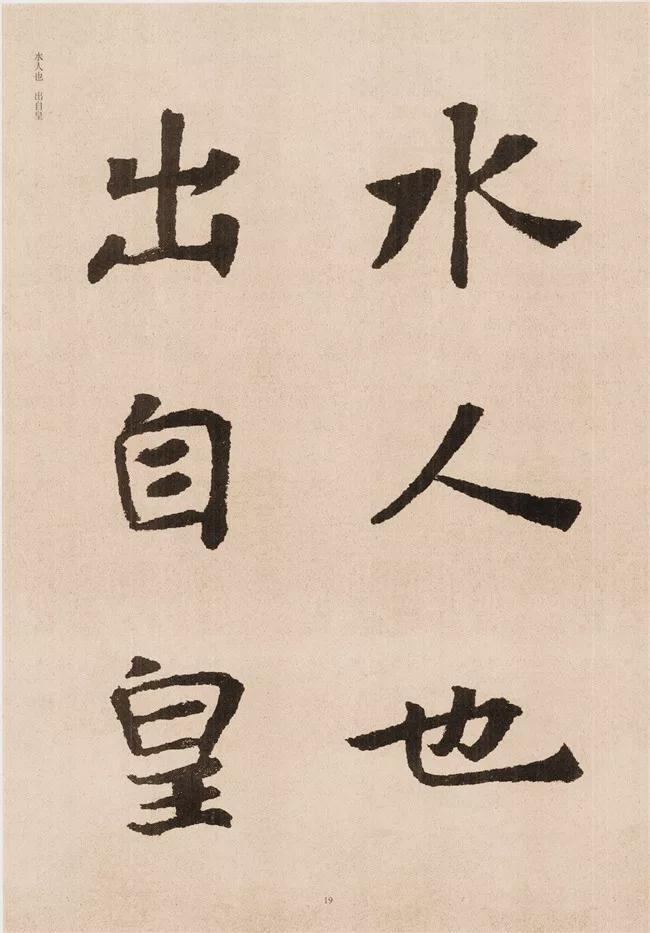 水人也
出自皇
水人也 出自皇
19